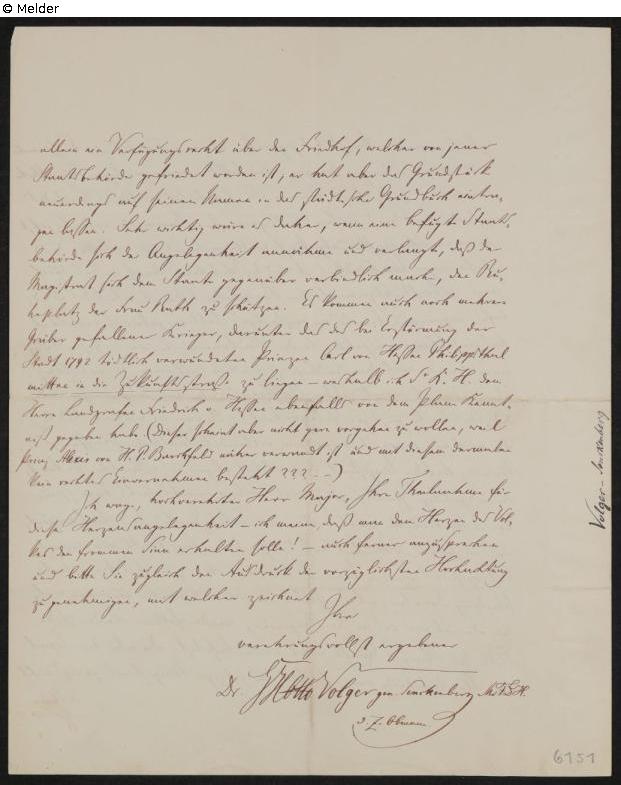 © Melder
allein ein Verfügungsrecht über den Friedhof, welcher von jener
Staatsbehörde gefriedet worden ist, er hat aber das Grundstück
neuerdings auf seinen Namen in das städtische Grundbuch eintra-
gen lassen. Sehr wichtig wäre es daher, wenn eine befugte Staats-
behörde sich der Angelegenheit annähme und verlangt, daß der
Magistrat sich dem Staate gegenüber verbindlich mache, den Ru-
heplatz der Frau Rath zu schützen. Es kommen auch noch mehrere
Gräber gefallener Krieger, darunter das des bei Erstürmung der
Stadt 1792 tödtlich verwundeten Prinzen Carl von Hessen Philippsthal
mitten in die Zukunftsstraße zu liegen – weshalb ich Sr K. H. dem
Herrn Landgrafen Friedrich v. Hessen ebenfalls von dem Plane Kennt-
niß gegeben habe (Dieser scheint aber nicht gern vorgehen zu wollen, weil
Prinz Alexis von H. P. Barchfeld näher verwandt ist und mit diesem dermalen
kein rechtes Einvernehmen besteht ??? –)
Ich wage, hochverehrter Herr Major, Ihre Theilnahme für
diese Herzensangelegenheit – ich meine, daß man dem Herzen des Vol-
kes den frommen Sinn erhalten solle! – auch ferner anzusprechen
und bitte Sie zugleich den Ausdruck der vorzüglichsten Hochachtung
zu genehmigen, mit welcher zeichnet
Ihr
verehrungsvollst ergebener
Dr. GHOtto Volger gen. Senckenberg
d. Z. Obmann
Volger – Senckenberg
6151